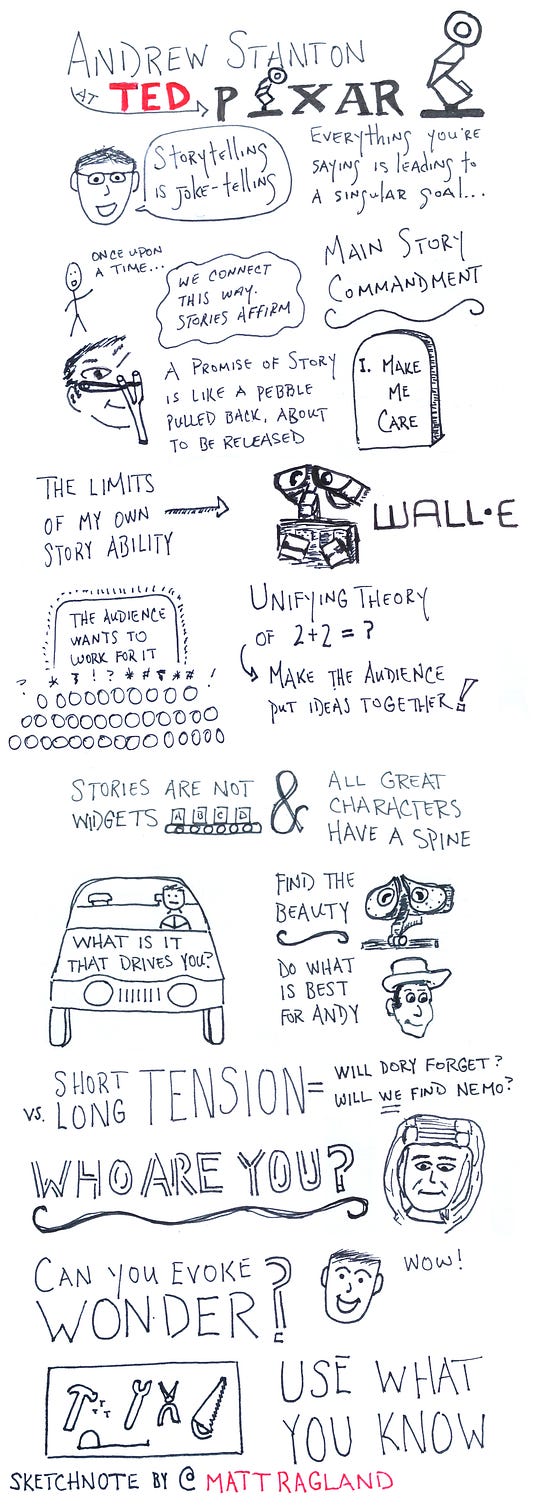 ANDREW STANTON
AT TED PIXAR
Storytelling
is joke-telling
Everything you're
saying is leading to
a singular goal...
ONCE UPON
A TIME...
WE CONNECT
THIS WAY.
STORIES AFFIRM
MAIN STORY
COMMANDMENT
A PROMISE OF STORY
IS LIKE A PEBBLE
PULLED BACK, ABOUT
TO BE RELEASED
I. MAKE
ME
CARE
THE LIMITS
OF MY OWN
STORY ABILITY
WALL•E
THE AUDIENCE
WANTS TO
WORK FOR IT
? * ? ! ? * # ? * # !
UNIFYING THEORY
OF 2+2 = ?
MAKE THE AUDIENCE
PUT IDEAS TOGETHER!
STORIES ARE NOT
WIDGETS A B C D
&
ALL GREAT
CHARACTERS
HAVE A SPINE
WHAT IS IT
THAT DRIVES YOU?
FIND THE
BEAUTY
DO WHAT
IS BEST
FOR ANDY
SHORT
VS. LONG TENSION =
WILL DORY FORGET?
WILL WE FIND NEMO?
WHO ARE YOU?
CAN YOU EVOKE
WONDER?
WOW!
USE WHAT
YOU KNOW
SKETCHNOTE BY @MATTRAGLAND